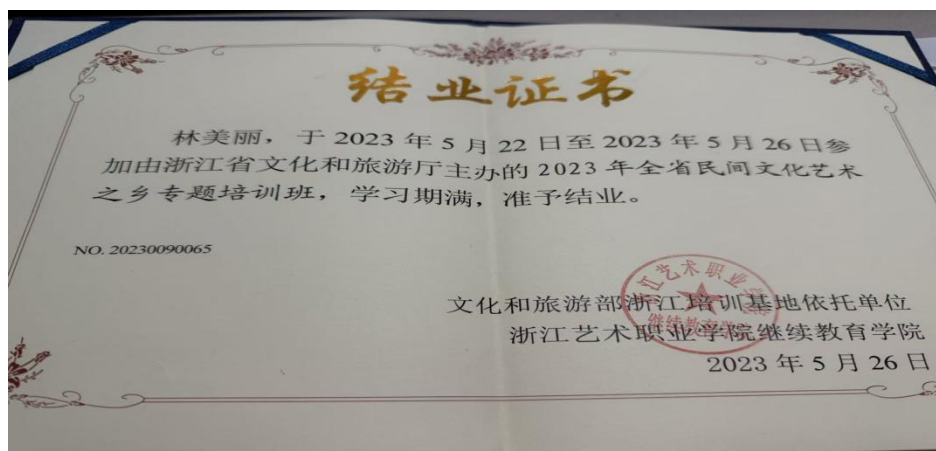 结业证书
林美丽，于 2023 年 5 月 22 日至 2023 年 5 月 26 日参
加由浙江省文化和旅游厅主办的 2023 年全省民间文化艺术
之乡专题培训班，学习期满，准予结业。
NO. 20230090065
浙江艺术职业学院
继续教育学院
文化和旅游部浙江培训基地依托单位
浙江艺术职业学院继续教育学院
2023 年 5 月 26 日